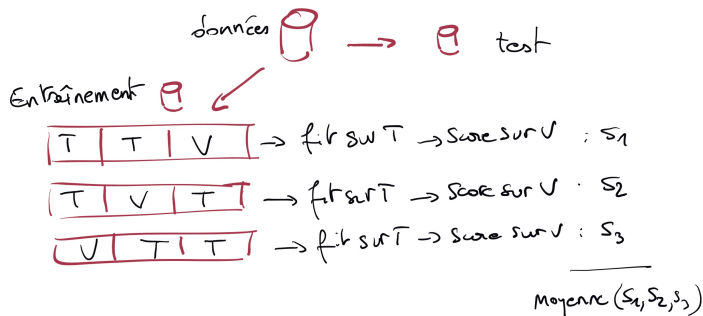 données test
Entraînement
T T V → fit sur T → Score sur V : S1
T V T → fit sur T → Score sur V : S2
V T T → fit sur T → Score sur V : S3
Moyenne (S1, S2, S3)